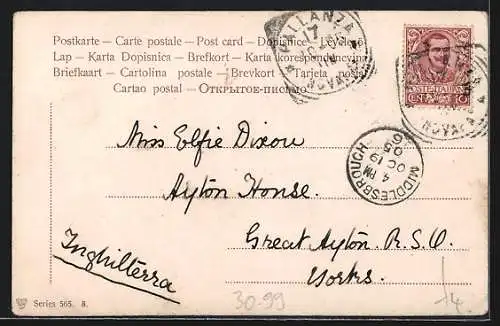 Postkarte – Carte postale – Post card – Dopisnice – Levelező
Lap – Karta Dopisnica – Brefkort – Karta korespondencyjna
Briefkaart – Cartolina postale – Brevkort – Tarjeta postal
Cartao postal – Открытое письмо
PALLANZA
17
POSTE ITALIANE
CENT. 10
MIDDLESBROUGH
4 PM
OC 19
05
Miss Elfie Dixon
Ayton House.
Great Ayton. R.S.O.
Yorks.
Inghilterra
Series 565. 8.
30-99
14